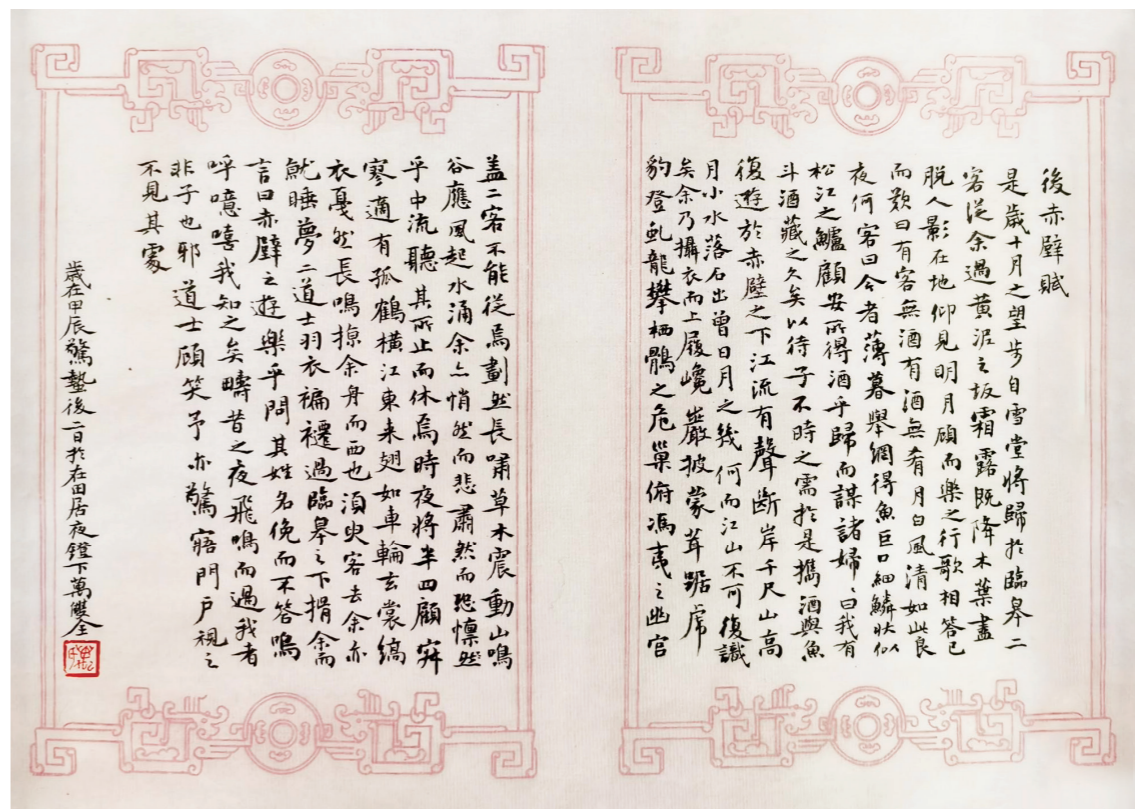 後赤壁賦
是歲十月之望步自雪堂將歸於臨皋二
客從余過黃泥之坂霜露既降木葉盡
脱人影在地仰見明月顧而樂之行歌相答已
而歎曰有客無酒有酒無肴月白風清如此良
夜何客曰今者薄暮舉網得魚巨口細鱗狀似
松江之鱸顧安所得酒乎歸而謀諸婦〻曰我有
斗酒藏之久矣以待子不時之需於是攜酒與魚
復遊於赤壁之下江流有聲斷岸千尺山高
月小水落石出曾日月之幾何而江山不可復識
矣余乃攝衣而上履巉巖披蒙茸踞虎
豹登虬龍攀栖鶻之危巢俯馮夷之幽宫
蓋二客不能從焉劃然長嘯草木震動山鳴
谷應風起水涌余亦悄然而悲肅然而恐懔然
乎中流聽其所止而休焉時夜將半四顧寂
寥適有孤鶴橫江東来翅如車輪玄裳縞
衣戛然長鳴掠余舟而西也須臾客去余亦
就睡夢二道士羽衣褊襳過臨皋之下揖余而
言曰赤壁之遊樂乎問其姓名俛而不答嗚
呼噫嘻我知之矣疇昔之夜飛鳴而過我者
非子也邪道士顧笑予亦驚寤開户視之
不見其處
歲在甲辰驚蟄後二日於在田居夜鐙下萬雙全